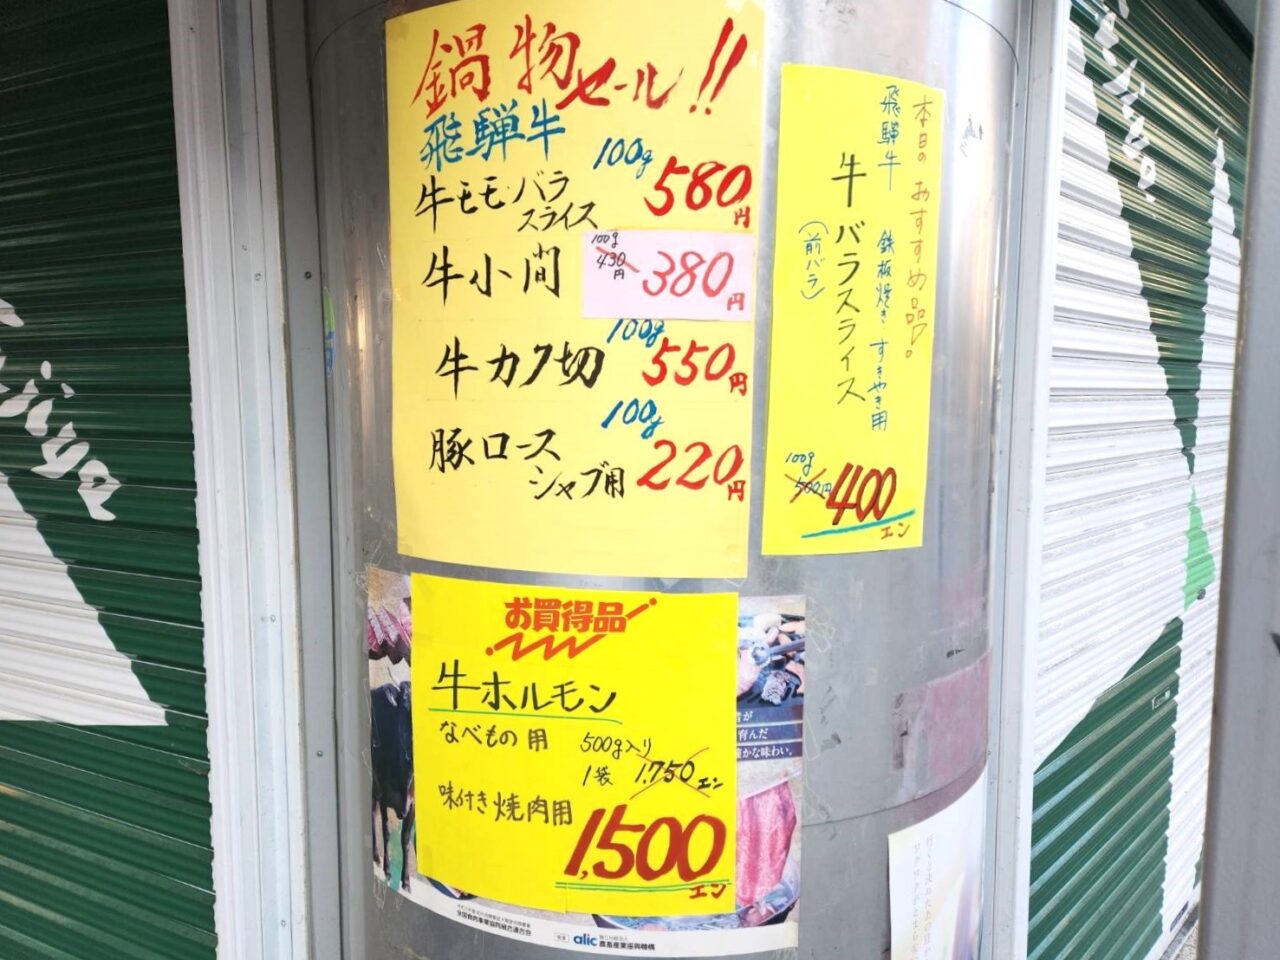 鍋物セール!!
飛騨牛
牛モモ・バラ
スライス
100g
580円
牛小間
100g
430円
380円
牛カク切
100g
550円
豚ロース
シャブ用
100g
220円
本日のおすすめ品!。
飛騨牛 鉄板焼き・すきやき用
牛バラスライス
(前バラ)
100g
500円
400エン
お買得品
牛ホルモン
なべもの用
500g入り
1袋
1,750エン
味付き焼肉用
1,500エン
が
育んだ
かな味わい。
全国食肉事業協同組合連合会
alic
農畜産業振興機構